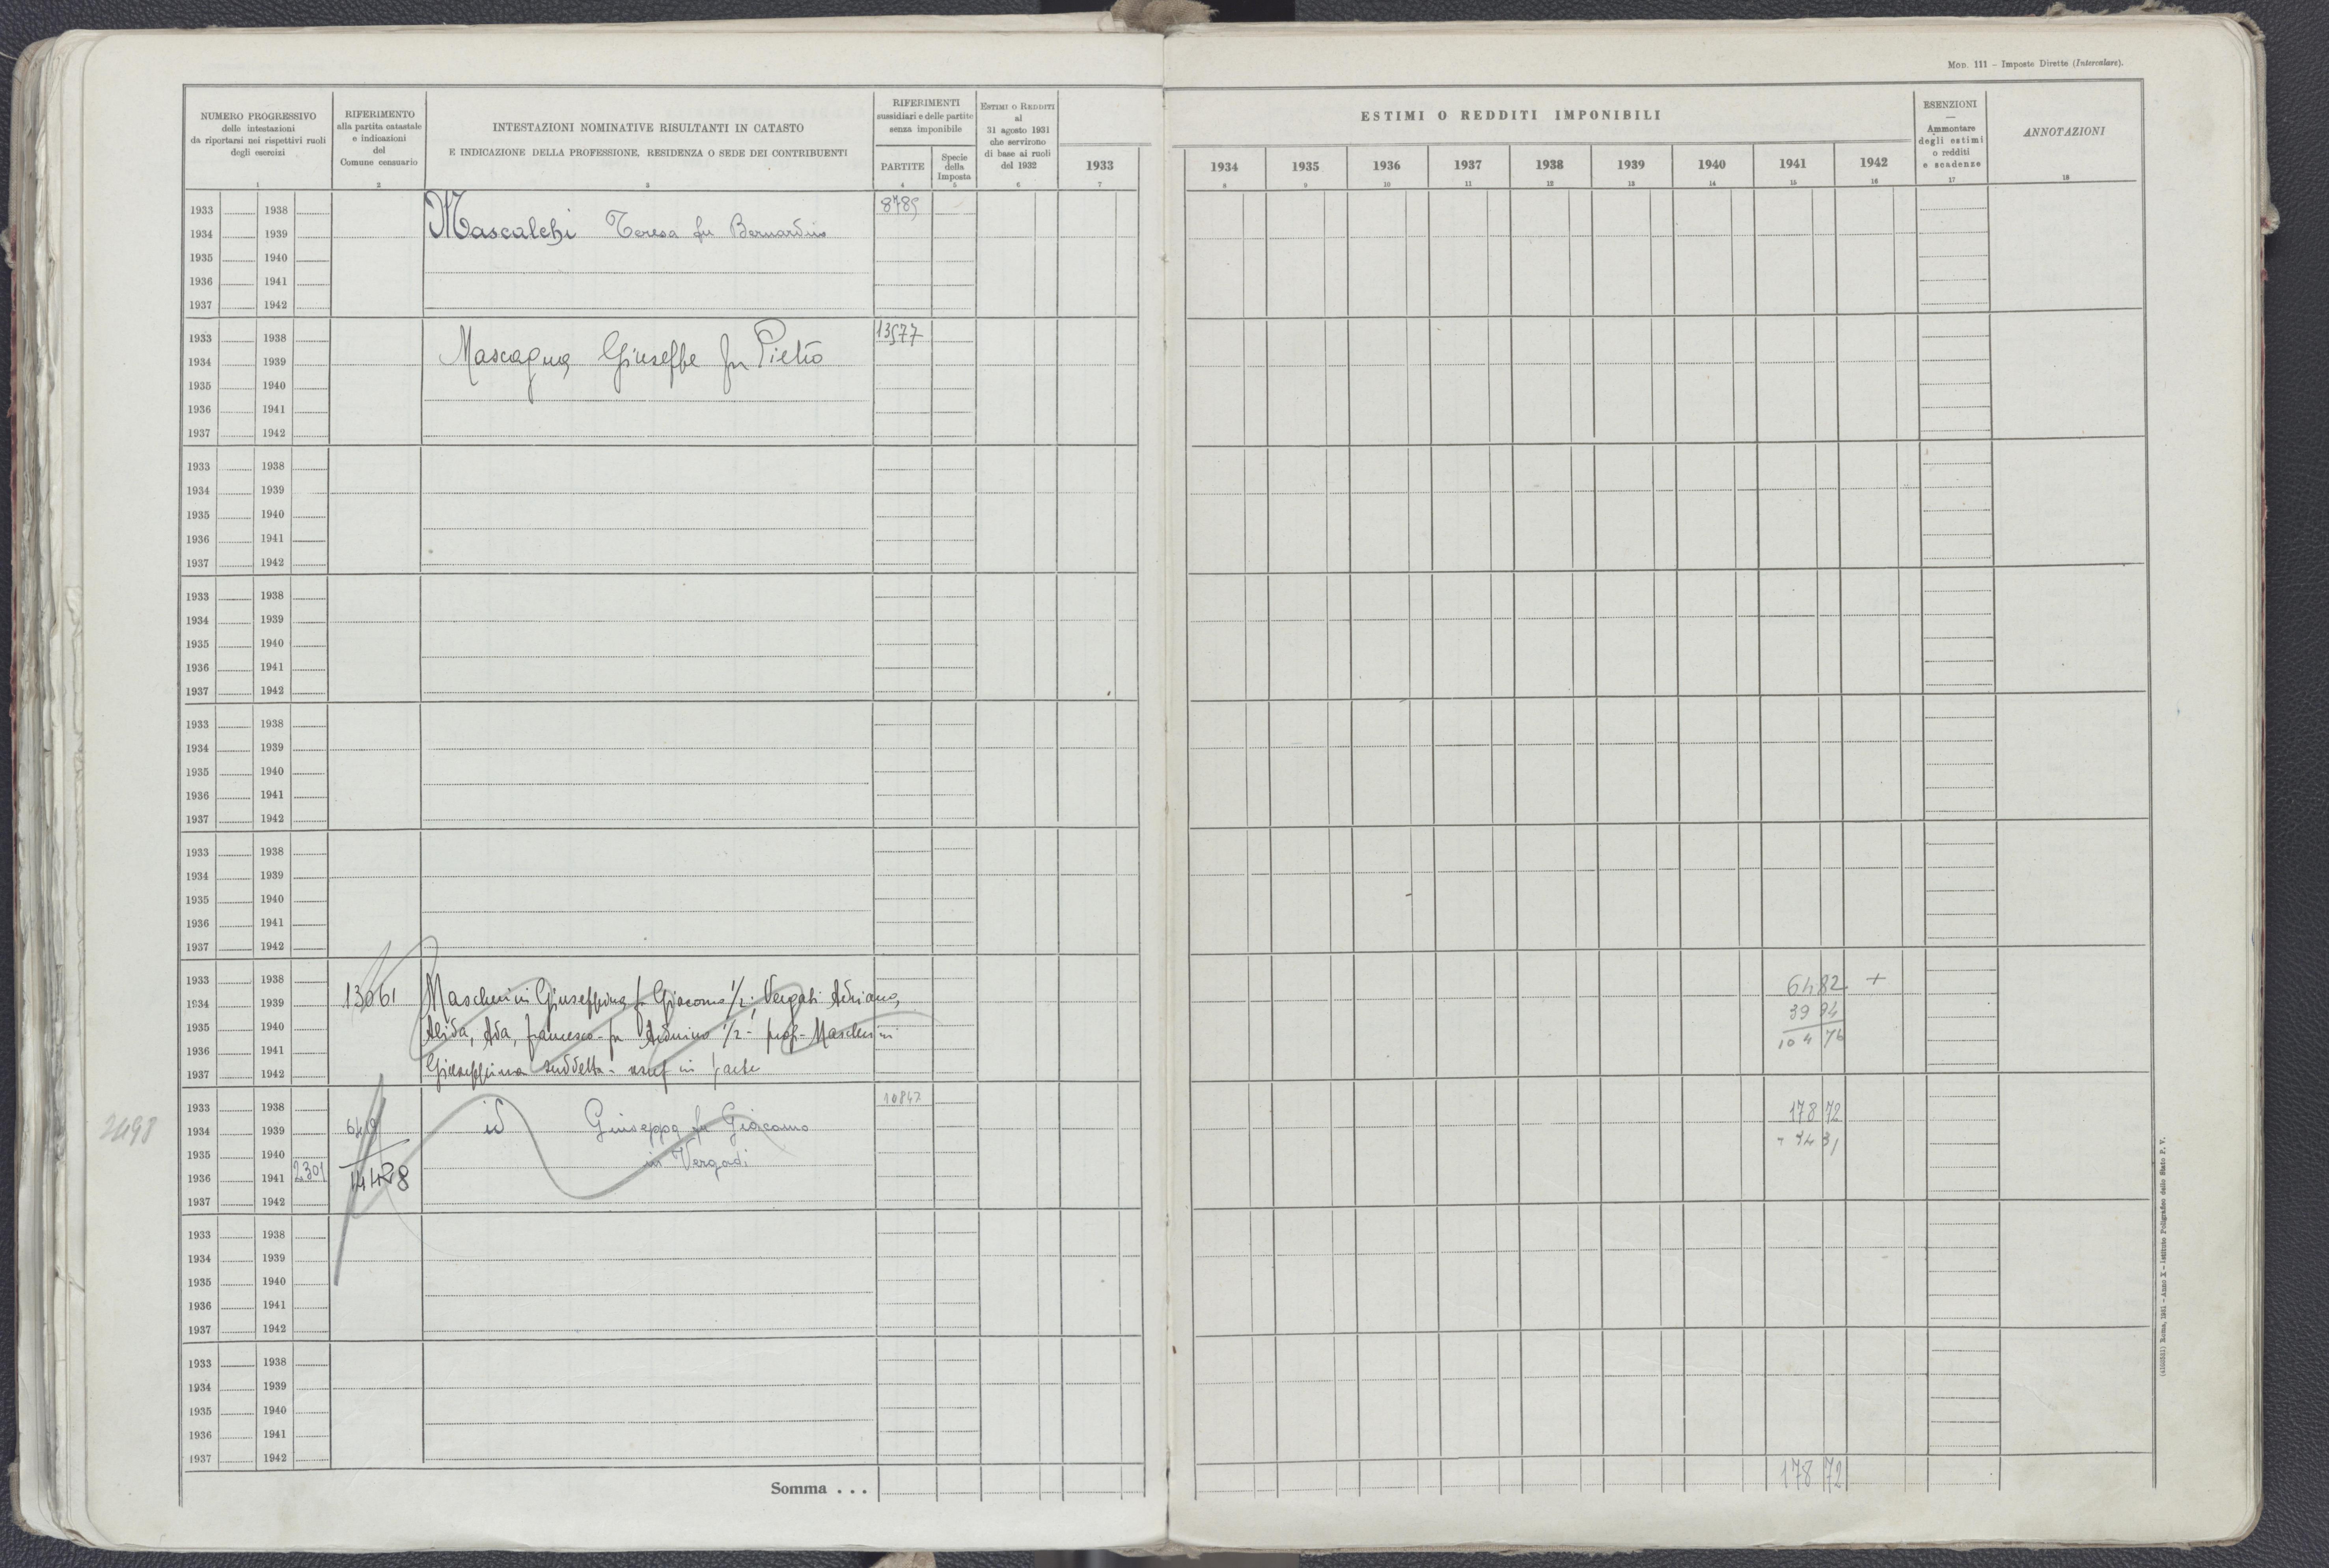 Mod. 111 – Imposte Dirette (Intercalare).
NUMERO PROGRESSIVO
delle intestazioni
da riportarsi nei rispettivi ruoli
degli esercizi
1
RIFERIMENTO
alla partita catastale
e indicazioni
del
Comune censuario
2
INTESTAZIONI NOMINATIVE RISULTANTI IN CATASTO
E INDICAZIONE DELLA PROFESSIONE, RESIDENZA O SEDE DEI CONTRIBUENTI
3
RIFERIMENTI
sussidiari e delle partite
senza imponibile
PARTITE
4
Specie
della
Imposta
5
Estimi o Redditi
al
31 agosto 1931
che servirono
di base ai ruoli
del 1932
6
1933
7
ESTIMI O REDDITI IMPONIBILI
1934 1935 1936 1937 1938 1939 1940 1941 1942
8 9 10 11 12 13 14 15 16
ESENZIONI
—
Ammontare
degli estimi
o redditi
e scadenze
17
ANNOTAZIONI
18
1933 1938 8789
1934 1939 Mascalchi Teresa fu Bernardino
1935 1940
1936 1941
1937 1942
1933 1938 13577
1934 1939 Mascagna Giuseppe fu Pietro
1935 1940
1936 1941
1937 1942
1933 1938
1934 1939
1935 1940
1936 1941
1937 1942
1933 1938
1934 1939
1935 1940
1936 1941
1937 1942
1933 1938
1934 1939
1935 1940
1936 1941
1937 1942
1933 1938
1934 1939
1935 1940
1936 1941
1937 1942
1933 1938 64 82 +
1934 1939 13061 Mascherini Giuseppina fu Giacomo 1/2; Vergati Adriano,
39 94
1935 1940 Alida, Ada, Francesco fu Arduino 1/2 - prop - Mascherini
104 76
1936 1941
1937 1942 Giuseppina suddetta - usuf in parte
1933 1938 10847 178 72
1934 1939 640 id Giuseppa fu Giacomo
2498
1935 1940 in Vergadi
- 74 31
1936 1941 2301 14428
1937 1942
1933 1938
1934 1939
1935 1940
1936 1941
1937 1942
1933 1938
1934 1939
1935 1940
1936 1941
1937 1942
Somma . . . 178 72
Roma, 1931 – Anno X – Istituto Poligrafico dello Stato P. V.